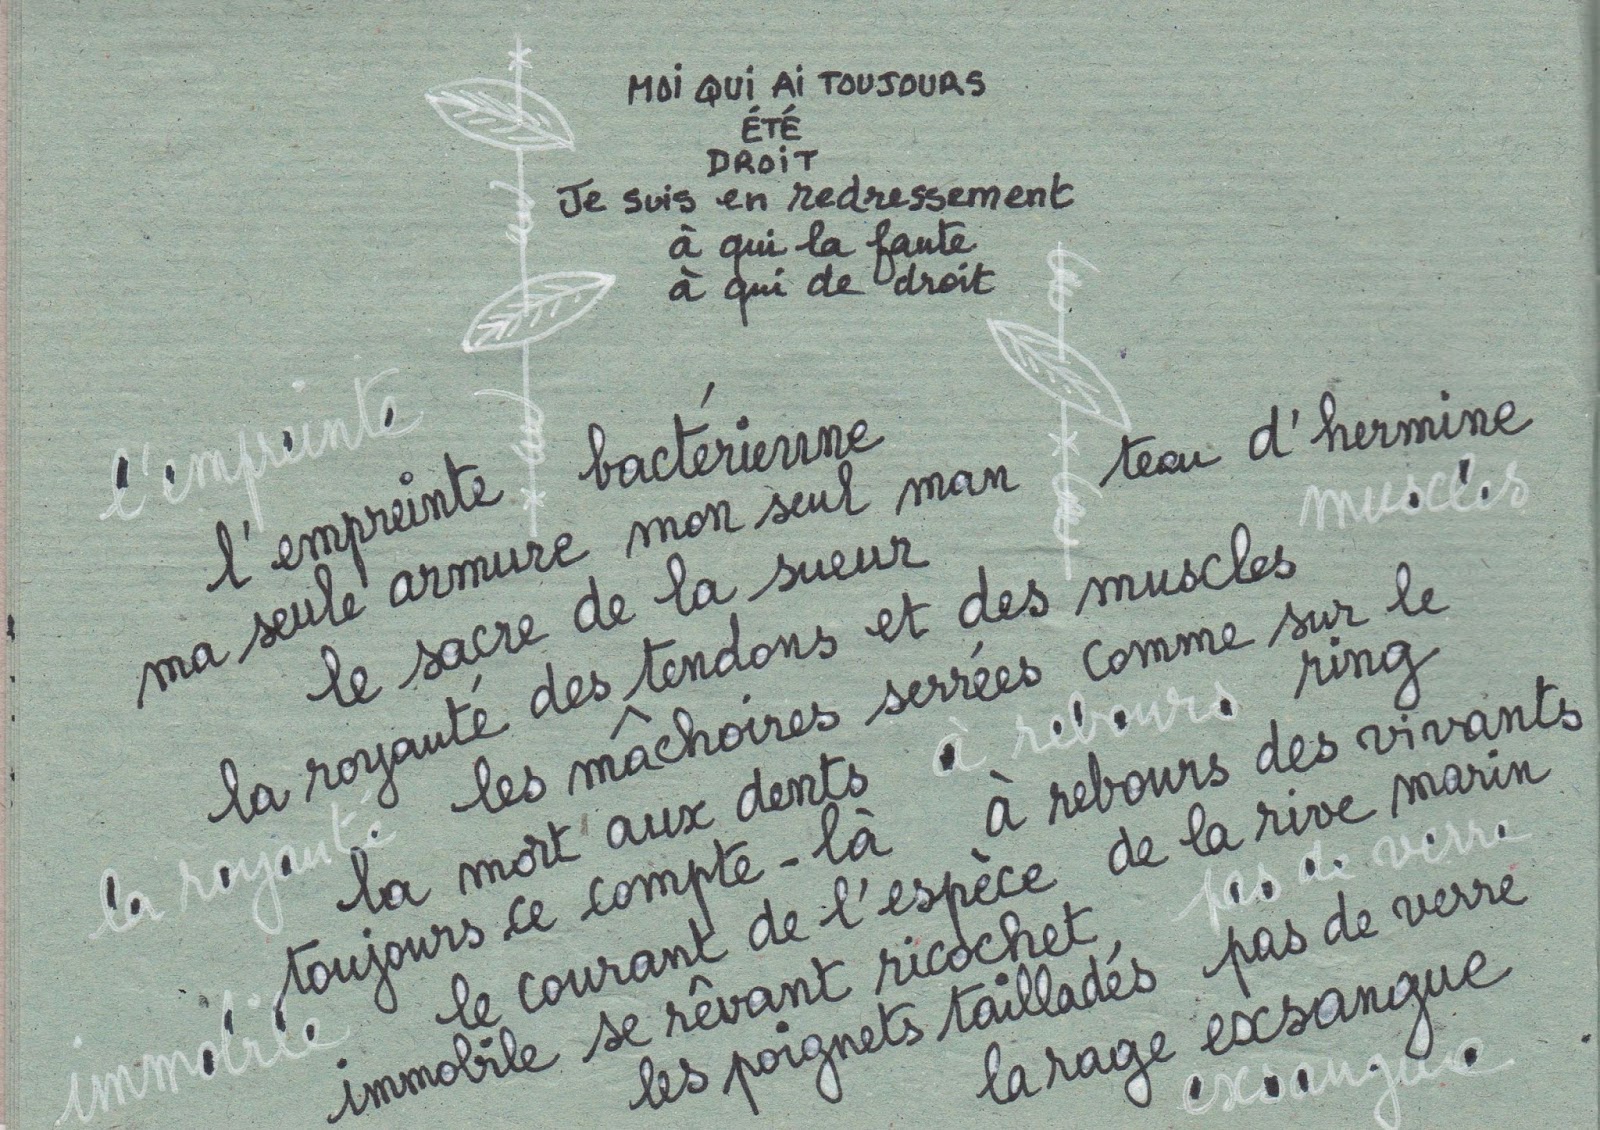 MOI QUI AI TOUJOURS
ÉTÉ
DROIT
Je suis en redressement
à qui la faute
à qui de droit
l'empreinte
l'empreinte bactérienne
ma seule armure mon seul man teau d'hermine
muscles
le sacre de la sueur
la royauté des tendons et des muscles
les mâchoires serrées comme sur le
ring
à rebours
la mort aux dents
la royauté
toujours ce compte-là à rebours des vivants
le courant de l'espèce de la rive marin
pas de verre
immobile
immobile se rêvant ricochet,
les poignets tailladés pas de verre
la rage exsangue
exsangue